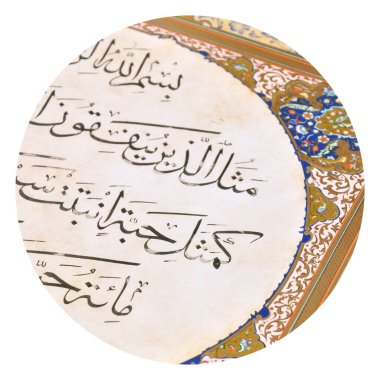 بسم الله الر
مثل الذين ينفقون ا
كمثل حبة انبتت س
مائة ح